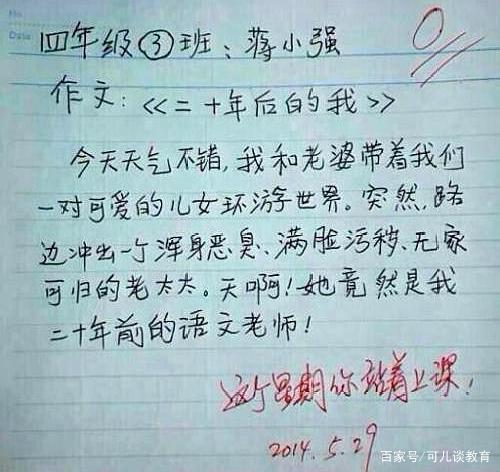 No
Date
0
四年级③班：蒋小强
作文：《二十年后的我》
今天天气不错,我和老婆带着我们
一对可爱的儿女环游世界。突然,路
边冲出一个浑身恶臭、满脸污秽、无家
可归的老太太。天啊!她竟然是我
二十年前的语文老师!
这个星期你站着上课!
2014.5.29
百家号/可儿谈教育